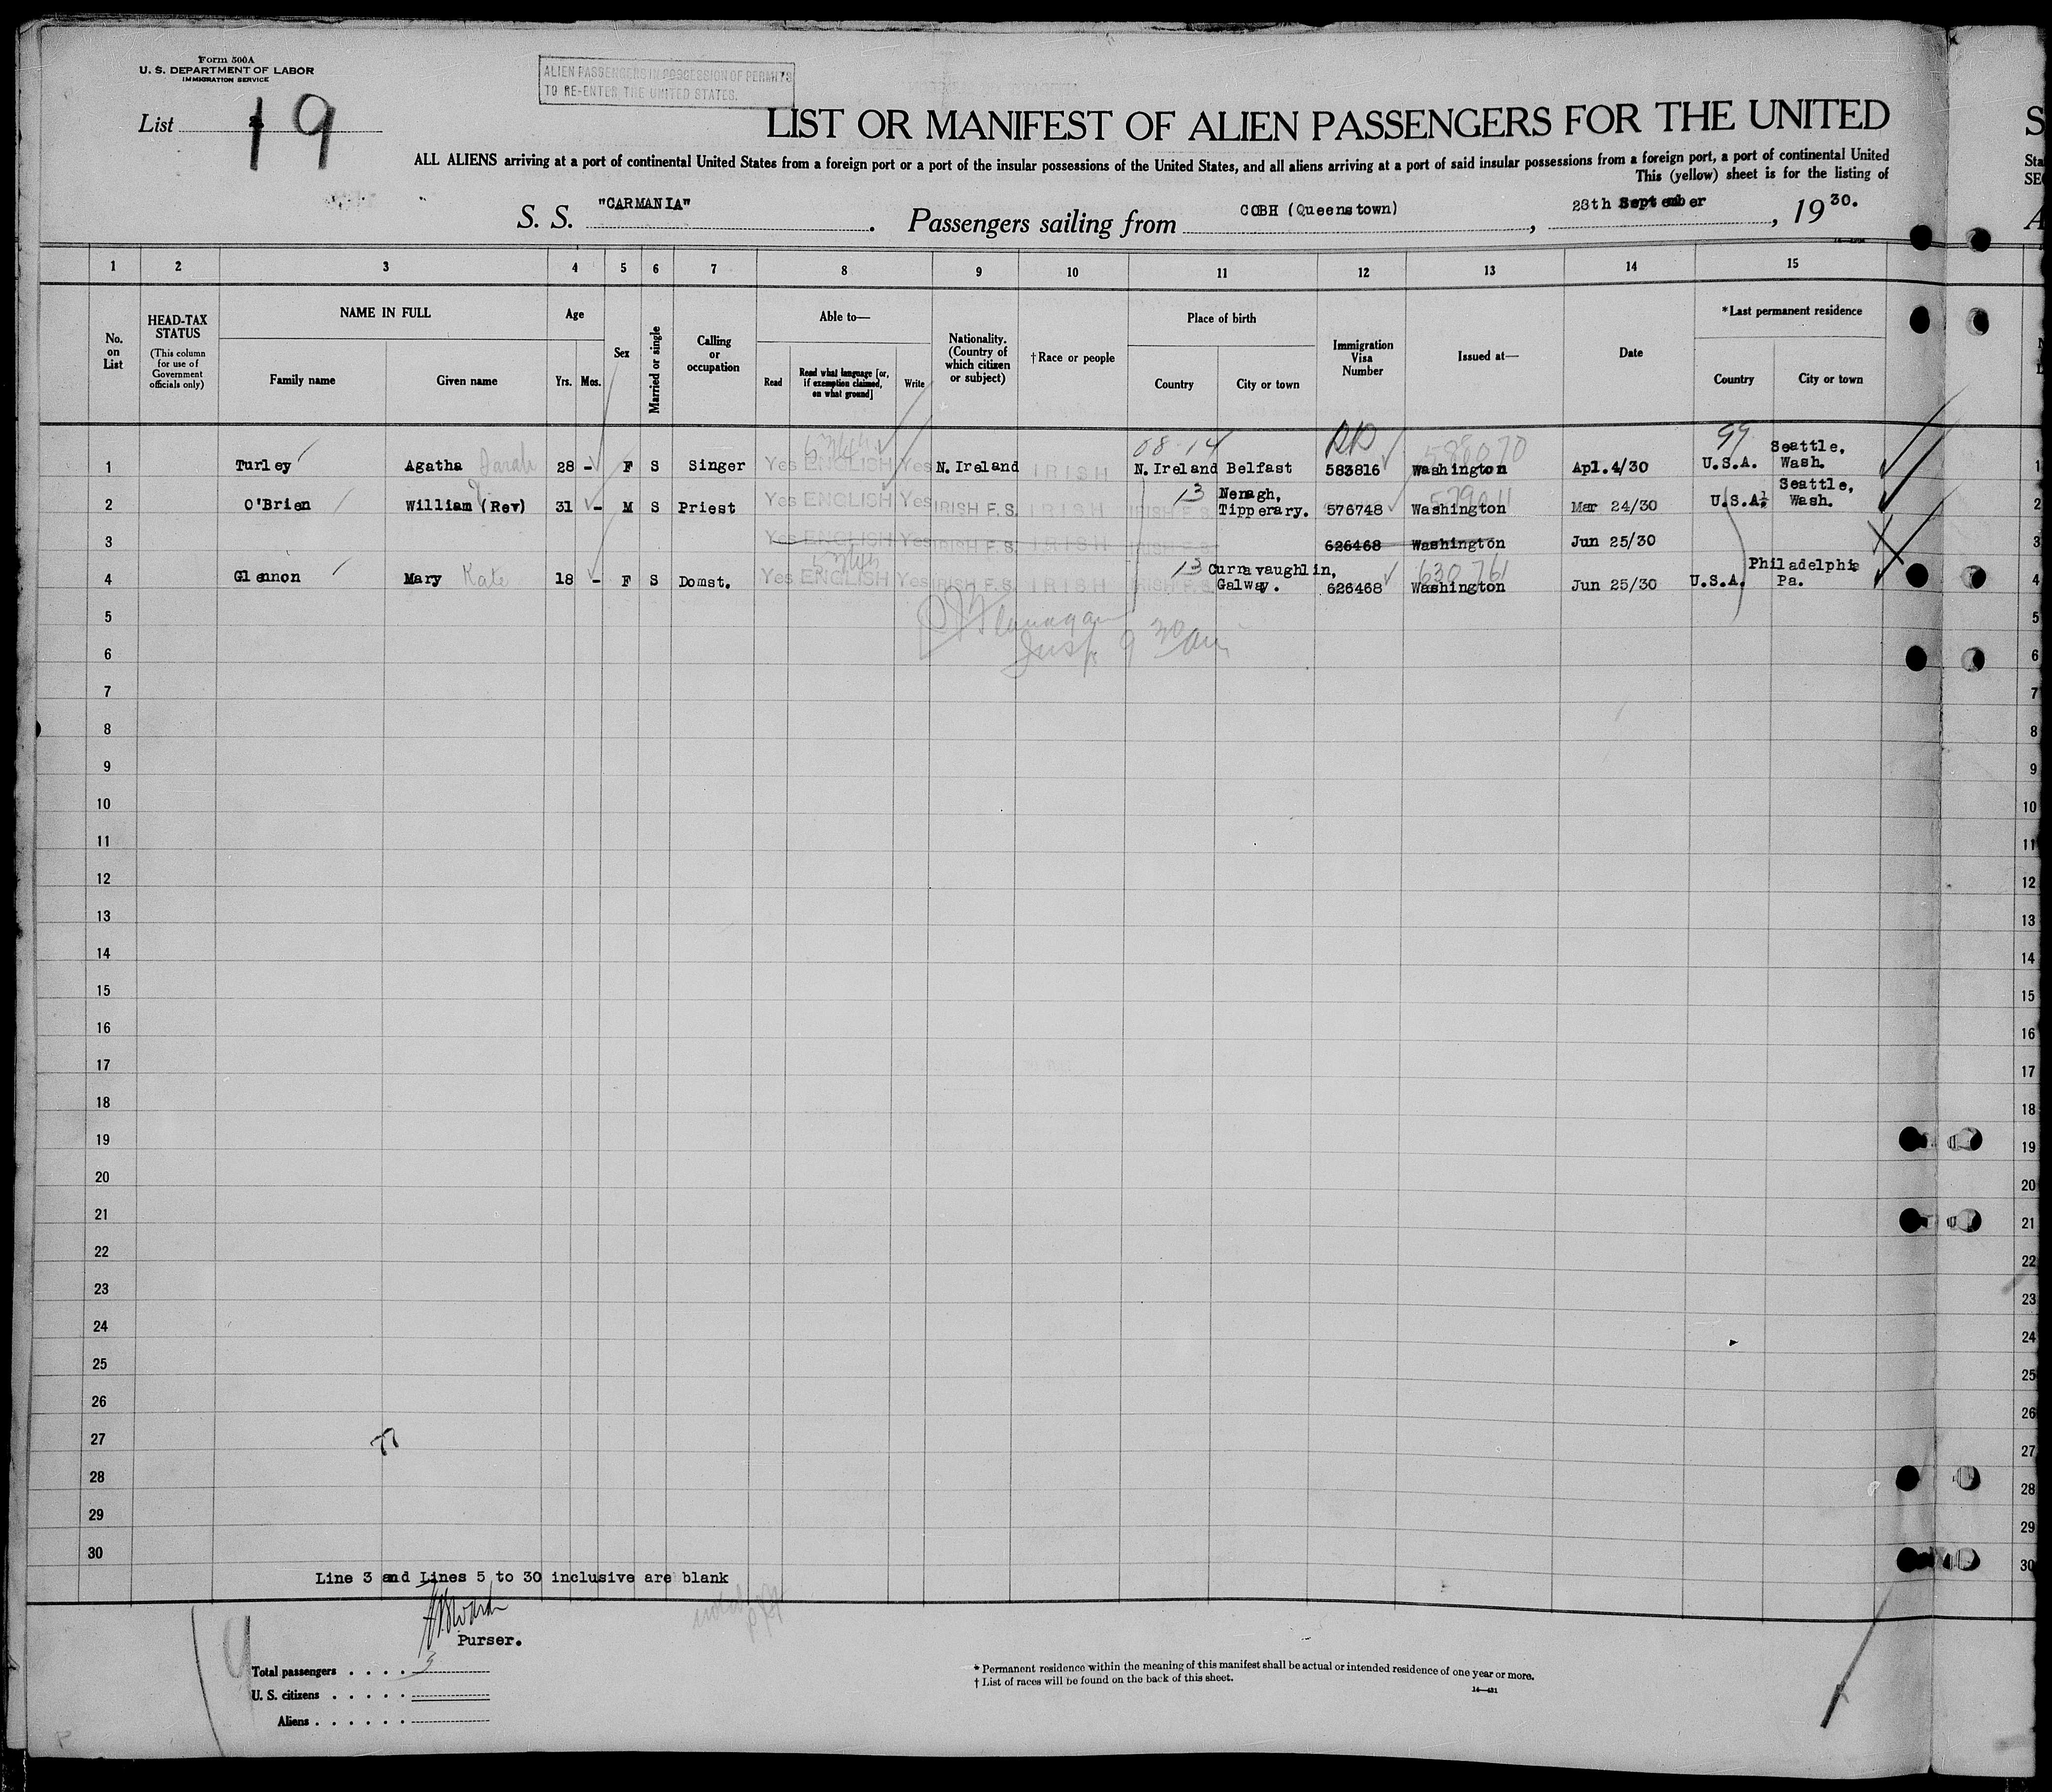 Form 500A
U. S. DEPARTMENT OF LABOR
IMMIGRATION SERVICE
ALIEN PASSENGERS IN POSSESSION OF PERMITS
TO RE-ENTER THE UNITED STATES.
List 19
LIST OR MANIFEST OF ALIEN PASSENGERS FOR THE UNITED
ALL ALIENS arriving at a port of continental United States from a foreign port or a port of the insular possessions of the United States, and all aliens arriving at a port of said insular possessions from a foreign port, a port of continental United
This (yellow) sheet is for the listing of
S. S. "CARMANIA". Passengers sailing from COBH (Queenstown), 28th September, 1930.
1 2 3 4 5 6 7 8 9 10 11 12 13 14 15
No. on List
HEAD-TAX STATUS
(This column for use of Government officials only)
NAME IN FULL
Family name
Given name
Age
Yrs.
Mos.
Sex
Married or single
Calling or occupation
Able to—
Read
Read what language [or, if exemption claimed, on what ground]
Write
Nationality. (Country of which citizen or subject)
†Race or people
Place of birth
Country
City or town
Immigration Visa Number
Issued at—
Date
*Last permanent residence
Country
City or town
08-14 99 588070
1 Turley Agatha Sarah 28 - F S Singer Yes ENGLISH Yes N. Ireland IRISH N. Ireland Belfast 583816 Washington Apl.4/30 U.S.A. Seattle, Wash.
2 O'Brien William (Rev) 31 - M S Priest Yes ENGLISH Yes IRISH F.S. IRISH IRISH F.S. 13 Nenagh, Tipperary. 576748 Washington Mar 24/30 U.S.A. Seattle, Wash.
3 Yes ENGLISH Yes IRISH F.S. IRISH IRISH F.S. 626468 Washington Jun 25/30
4 Glennon Mary Kate 18 - F S Domst. Yes ENGLISH Yes IRISH F.S. IRISH IRISH F.S. 13 Curravaughlin, Galway. 626468 630761 Washington Jun 25/30 U.S.A. Philadelphia Pa.
5
6
7
8
9
10
11
12
13
14
15
16
17
18
19
20
21
22
23
24
25
26
27
28
29
30
Line 3 and Lines 5 to 30 inclusive are blank
Purser.
Total passengers . . . . 3
U. S. citizens . . . . .
Aliens . . . . . .
* Permanent residence within the meaning of this manifest shall be actual or intended residence of one year or more.
† List of races will be found on the back of this sheet.
14—431